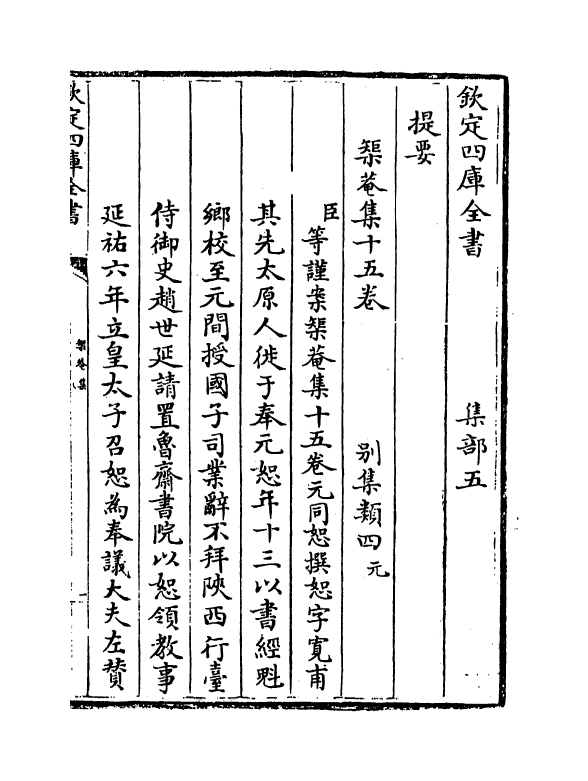 欽定四庫全書　集部五
提要
榘菴集十五卷　別集類四元
臣等謹案榘菴集十五卷元同恕撰恕字寛甫
其先太原人徙于奉元恕年十三以書經魁
鄉校至元間授國子司業辭不拜陝西行臺
侍御史趙世延請置魯齋書院以恕領教事
延祐六年立皇太子召恕為奉議大夫左贊
欽定四庫全書
榘菴集
一